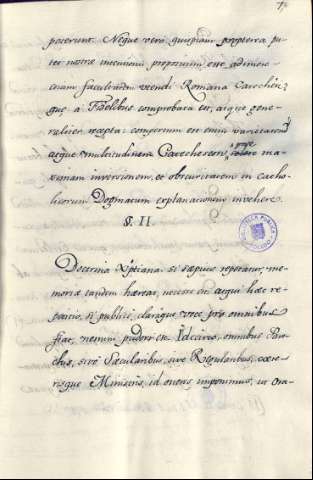 poterunt. Neque verò quispiam propterea pu-
tet nostræ mentem propositum esse adimere
facultatem utendi Romana Catechesi
quę à Fidelibus comprobata est, atque gene-
raliter recepta: compertum est enim varietatem
atque multitudinem Catecheseon,
inversionem, et obscuritatem in catho-
licorum Dogmatum explanationem invehere.
§. II.
Doctrina Xp̃tiana si sæpius repetatur, me-
moriæ tandem hæreat, necesse est: atqui hæc re-
petitio, si publicè, clarâque voce pro omnibus
fiat, nemini pudori est. Idcirco omnibus Paro-
chis, sivè Sæcularibus, sive Regularibus, cæte-
risque Ministris, id oneris imponimus, ut Ora-
BIBLIOTECA PUBLICA
TOLEDO